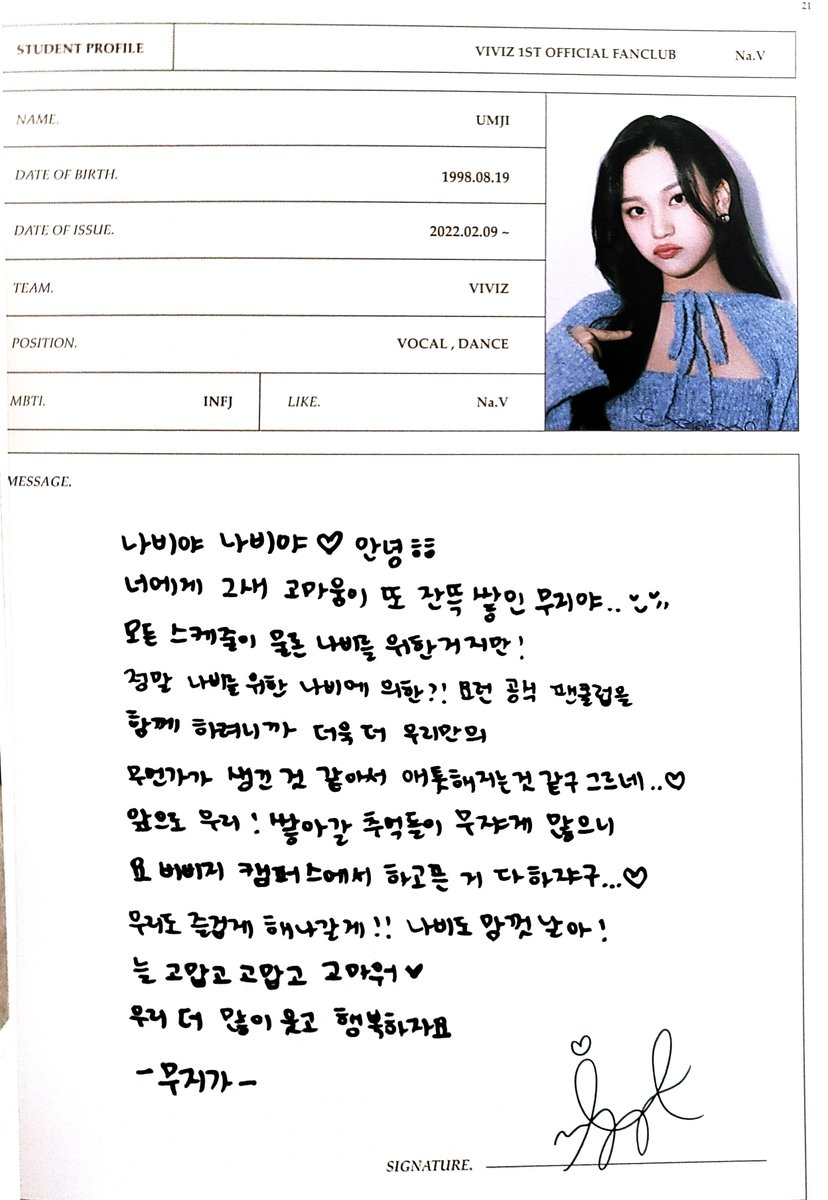 21
STUDENT PROFILE
VIVIZ 1ST OFFICIAL FANCLUB Na.V
NAME. UMJI
DATE OF BIRTH. 1998.08.19
DATE OF ISSUE. 2022.02.09 ~
TEAM. VIVIZ
POSITION. VOCAL , DANCE
MBTI. INFJ LIKE. Na.V
MESSAGE.
나비야 나비야 ♡ 안녕!!
너에게 그새 고마움이 또 잔뜩 쌓인 무지야..
모든 스케줄이 물론 나비를 위한거지만!
정말 나비를 위한 나비에 의한?! 요런 공식 팬클럽을
함께 하려니까 더욱 더 우리만의
무언가가 생긴 것 같아서 애틋해지는것 같구 그르네..♡
앞으로 우리! 쌓아갈 추억들이 무쟈게 많으니
요 비비지 캠퍼스에서 하고픈 거 다 하쟈구...♡
우리도 즐겁게 해나갈게!! 나비도 맘껏 날아!
늘 고맙고 고맙고 고마워♥
우리 더 많이 웃고 행복하자요
-무지가-
SIGNATURE.